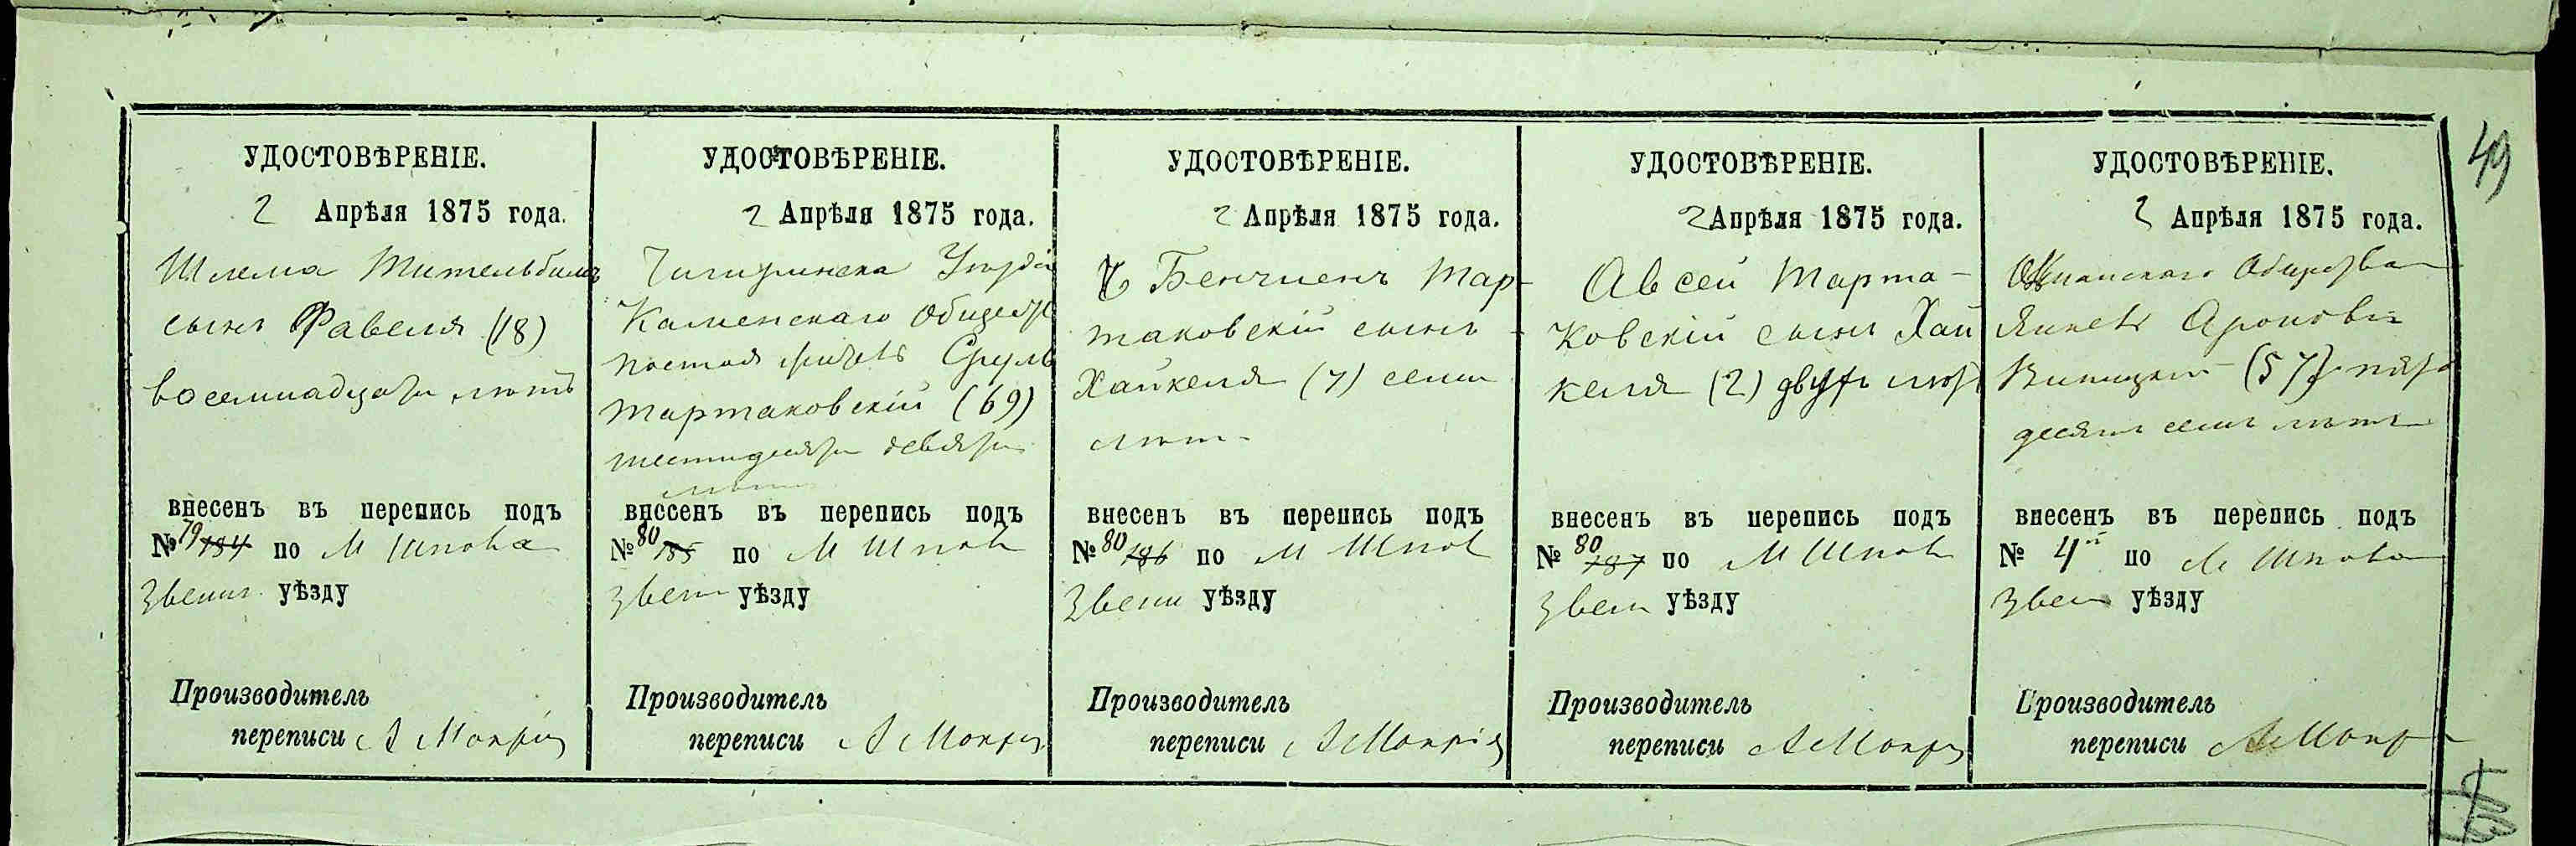 49
УДОСТОВѢРЕНІЕ.
2 Апрѣля 1875 года.
Шлема Тительбаумъ
сынъ Фавеля (18)
восемнадцати лѣтъ
внесенъ въ перепись подъ
№ 79 184 по М Шпола
Звениг. уѣзду
Производитель
переписи А Мокріц
УДОСТОВѢРЕНІЕ.
2 Апрѣля 1875 года.
Чигиринска
Каменскаго Общест
Сруль
Тартаковскій (69)
шестидесяти девяти
лѣтъ
внесенъ въ перепись подъ
№ 80 185 по М Шпол
Звен уѣзду
Производитель
переписи А Мокр
УДОСТОВѢРЕНІЕ.
2 Апрѣля 1875 года.
Бенчиенъ Тар-
таковскій сынъ
Хайкеля (7) семи
лѣтъ
внесенъ въ перепись подъ
№ 80 186 по М Шпол
Звени уѣзду
Производитель
переписи А Мокріц
УДОСТОВѢРЕНІЕ.
2 Апрѣля 1875 года.
Авсей Тарта-
ковскій сынъ Хай
келя (2) двухъ лѣт
внесенъ въ перепись подъ
№ 80 187 по М Шпол
Звен уѣзду
Производитель
переписи А Мокр
УДОСТОВѢРЕНІЕ.
2 Апрѣля 1875 года.
Общества
Янкель Аронов
Виницкій (57) пяти
десяти семи лѣтъ
внесенъ въ перепись подъ
№ 4 по М Шпола
Звен уѣзду
Производитель
переписи А Мокр